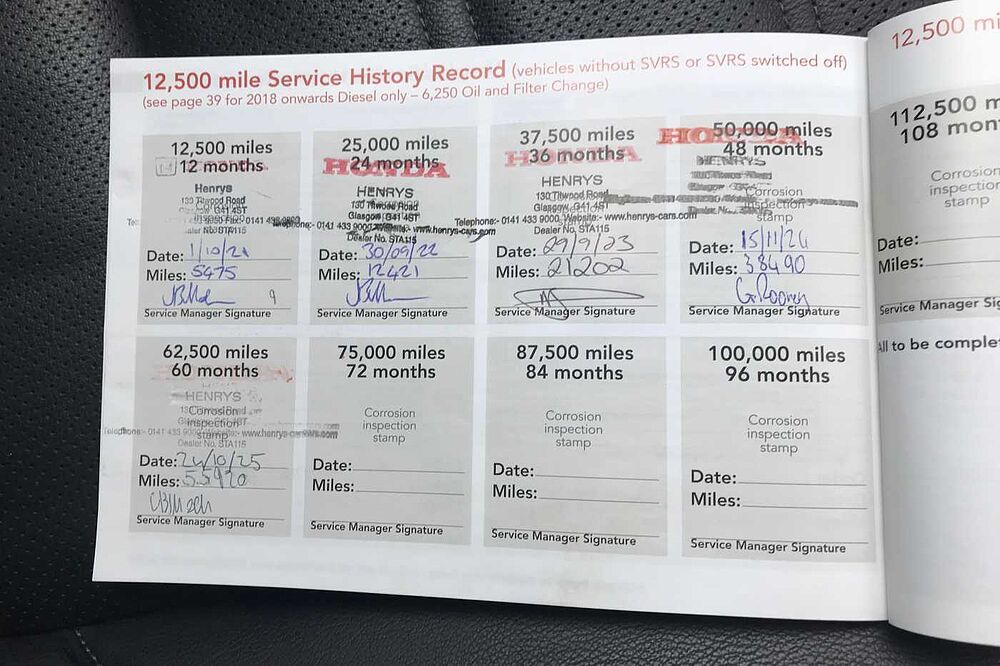 12,500 mile Service History Record (vehicles without SVRS or SVRS switched off)
(see page 39 for 2018 onwards Diesel only – 6,250 Oil and Filter Change)
12,500 miles
12 months
Henrys
130 Titwood Road
Glasgow G41 4ST
Date: 1/10/21
Miles: 5475
9
Service Manager Signature
25,000 miles
24 months
HONDA
HENRYS
130 Titwood Road
Glasgow G41 4ST
Telephone:- 0141 433 9000 Website:- www.henrys-cars.com
Dealer No. STA115
Date: 30/09/22
Miles: 12421
Service Manager Signature
37,500 miles
36 months
HONDA
HENRYS
130 Titwood Road
Glasgow, G41 4ST
Telephone:- 0141 433 9000, Website:- www.henrys-cars.com
Dealer No. STA115
Date: 29/9/23
Miles: 21202
Service Manager Signature
50,000 miles
48 months
HONDA
HENRYS
Corrosion
inspection
stamp
Date: 15/11/24
Miles: 38490
G. Rooney
Service Manager Signature
62,500 miles
60 months
HENRYS
Corrosion
inspection
stamp
Telephone:- 0141 433 9000 Website:- www.henrys-cars.com
Dealer No. STA115
Date: 24/10/25
Miles: 55920
Service Manager Signature
75,000 miles
72 months
Corrosion
inspection
stamp
Date:
Miles:
Service Manager Signature
87,500 miles
84 months
Corrosion
inspection
stamp
Date:
Miles:
Service Manager Signature
100,000 miles
96 months
Corrosion
inspection
stamp
Date:
Miles:
Service Manager Signature
12,500 mi
112,500 m
108 mon
Corrosion
inspection
stamp
Date:
Miles:
Service Manager Sig
All to be complet